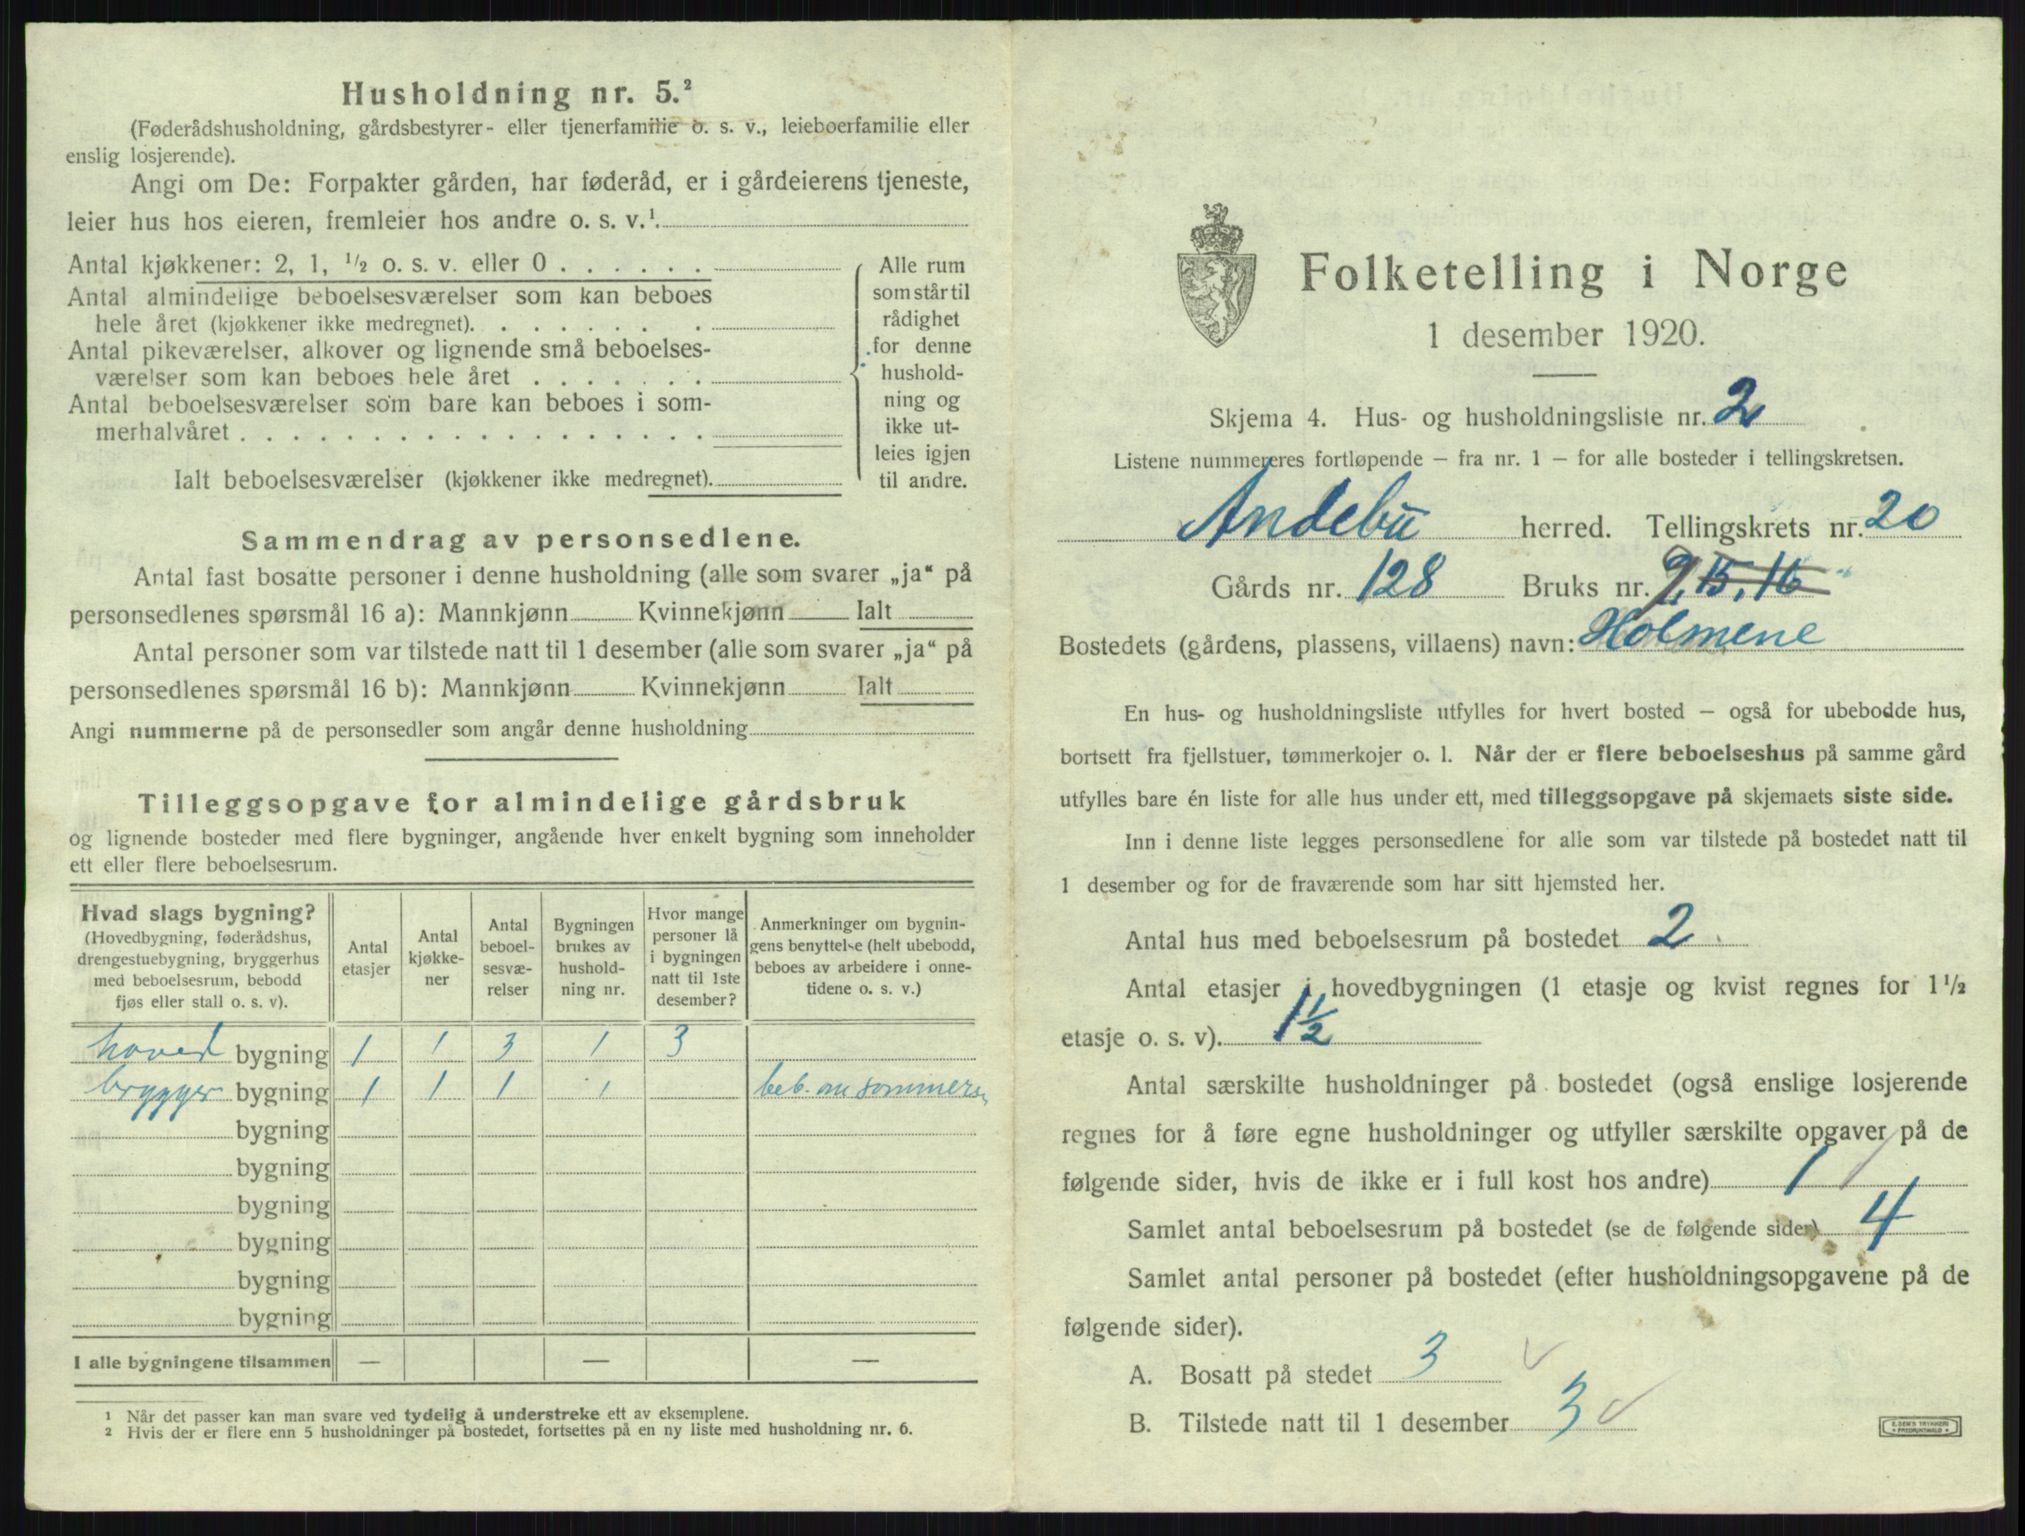 Husholdning nr. 5.²
(Føderådshusholdning, gårdsbestyrer- eller tjenerfamilie o. s. v., leieboerfamilie eller
enslig losjerende).
Angi om De: Forpakter gården, har føderåd, er i gårdeierens tjeneste,
leier hus hos eieren, fremleier hos andre o. s. v.¹.
Antal kjøkkener: 2, 1, ½ o. s. v. eller 0 . . . . . .
Antal almindelige beboelsesværelser som kan beboes
hele året (kjøkkener ikke medregnet). . . . . . . .
Antal pikeværelser, alkover og lignende små beboelses-
værelser som kan beboes hele året . . . . . . .
Antal beboelsesværelser som bare kan beboes i som-
merhalvåret . . . . . . . . . . . . . . . . . .
Ialt beboelsesværelser (kjøkkener ikke medregnet).
Alle rum
som står til
rådighet
for denne
hushold-
ning og
ikke ut-
leies igjen
til andre.
Sammendrag av personsedlene.
Antal fast bosatte personer i denne husholdning (alle som svarer „ja“ på
personsedlenes spørsmål 16 a): Mannkjønn Kvinnekjønn Ialt
Antal personer som var tilstede natt til 1 desember (alle som svarer „ja“ på
personsedlenes spørsmål 16 b): Mannkjønn Kvinnekjønn Ialt
Angi nummerne på de personsedler som angår denne husholdning
Tilleggsopgave for almindelige gårdsbruk
og lignende bosteder med flere bygninger, angående hver enkelt bygning som inneholder
ett eller flere beboelsesrum.
Hvad slags bygning?
(Hovedbygning, føderådshus,
drengestuebygning, bryggerhus
med beboelsesrum, bebodd
fjøs eller stall o. s. v).
Antal
etasjer
Antal
kjøkke-
ner
Antal
beboel-
sesvæ-
relser
Bygningen
brukes av
hushold-
ning nr.
Hvor mange
personer lå
i bygningen
natt til 1ste
desember?
Anmerkninger om bygnin-
gens benyttelse (helt ubebodd,
beboes av arbeidere i onne-
tidene o. s. v.)
hoved bygning 1 1 3 1 3
brygger bygning 1 1 1 1 beb. om sommeren
bygning
bygning
bygning
bygning
bygning
bygning
I alle bygningene tilsammen — — —
¹ Når det passer kan man svare ved tydelig å understreke ett av eksemplene.
² Hvis der er flere enn 5 husholdninger på bostedet, fortsettes på en ny liste med husholdning nr. 6.
Folketelling i Norge
1 desember 1920.
Skjema 4. Hus- og husholdningsliste nr. 2
Listene nummereres fortløpende – fra nr. 1 – for alle bosteder i tellingskretsen.
Andebu herred. Tellingskrets nr. 20
Gårds nr. 128 Bruks nr. 9, 15, 16
Bostedets (gårdens, plassens, villaens) navn: Holmene
En hus- og husholdningsliste utfylles for hvert bosted – også for ubebodde hus,
bortsett fra fjellstuer, tømmerkojer o. l. Når der er flere beboelseshus på samme gård
utfylles bare én liste for alle hus under ett, med tilleggsopgave på skjemaets siste side.
Inn i denne liste legges personsedlene for alle som var tilstede på bostedet natt til
1 desember og for de fraværende som har sitt hjemsted her.
Antal hus med beboelsesrum på bostedet 2
Antal etasjer i hovedbygningen (1 etasje og kvist regnes for 1½
etasje o. s. v). 1½
Antal særskilte husholdninger på bostedet (også enslige losjerende
regnes for å føre egne husholdninger og utfyller særskilte opgaver på de
følgende sider, hvis de ikke er i full kost hos andre) 1
Samlet antal beboelsesrum på bostedet (se de følgende sider) 4
Samlet antal personer på bostedet (efter husholdningsopgavene på de
følgende sider).
A. Bosatt på stedet 3
B. Tilstede natt til 1 desember 3